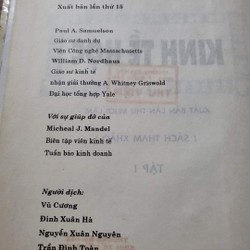 Xuất bản lần thứ 15
Paul A. Samuelson
Giáo sư danh dự
Viện Công nghệ Massachusetts
William D. Nordhaus
Giáo sư kinh tế
nhận giải thưởng A. Whitney Griswold
Đại học tổng hợp Yale
Với sự giúp đỡ của
Micheal J. Mandel
Biên tập viên kinh tế
Tuần báo kinh doanh
Người dịch:
Vũ Cương
Đinh Xuân Hà
Nguyễn Xuân Nguyên
Trần Đình Toàn
KINH TẾ
THƯ VIỆN
XUẤT BẢN LẦN THỨ
SÁCH THAM KHẢO
TẬP I